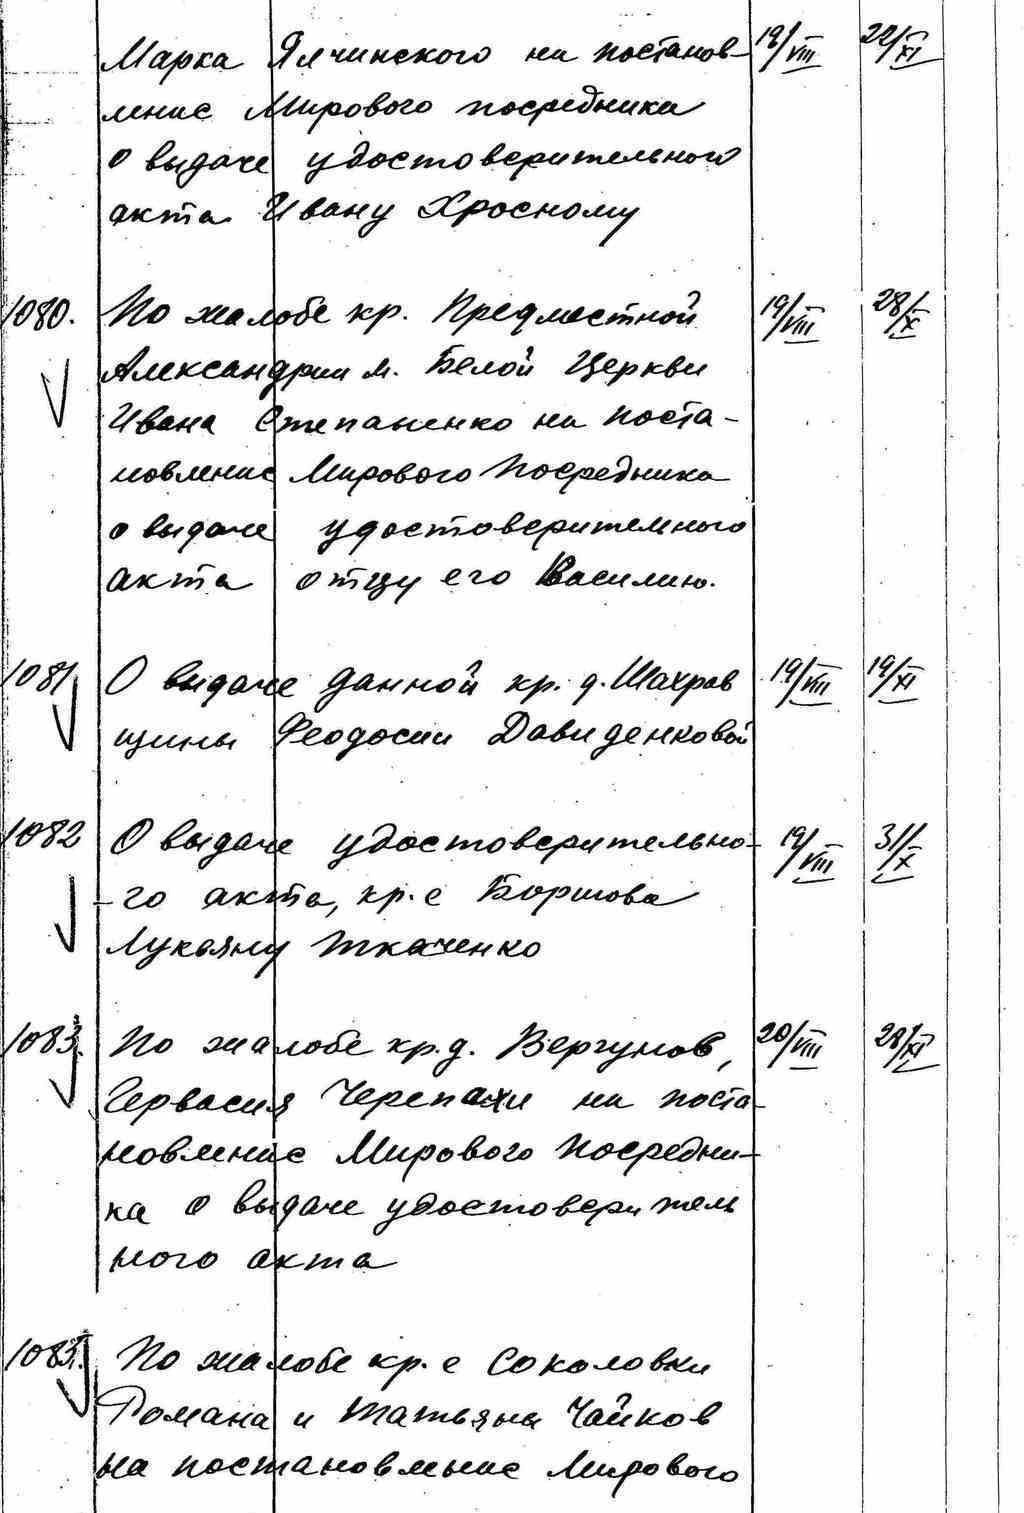 Марка Ялчинского на постанов- 18/VIII 22/XI
ление Мирового посредника
о выдаче удостоверительного
акта Ивану Хросному
1080. По жалобе кр. Предместной 19/VIII 28/X
Александрии м. Белой Церкви
Ивана Степаненко на поста-
новление Мирового Посредника
о выдаче удостоверительного
акта отцу его Василию.
1081 О выдаче данной кр. д. Шахров 19/VIII 19/XI
щины Феодосии Давиденковой
1082 О выдаче удостоверительно- 19/VIII 31/X
-го акта, кр. с Боршова
Лукьяну Ткаченко
1083. По жалобе кр. д. Вергунов, 20/VIII 28/XI
Гервасия Черепахи на поста-
новление Мирового Посредни-
ка о выдаче удостоверитель
ного акта
По жалобе кр. с Соколовки
Романа и Татьяны Чайков
на постановление Мирового